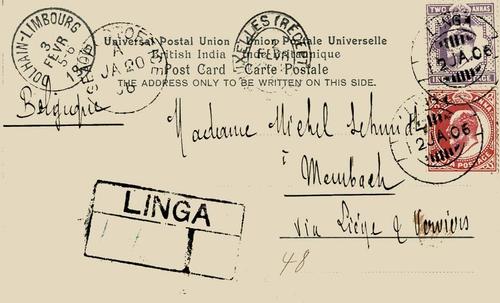 DOLHAIN-LIMBOURG
3
FEVR
5-6
1906
JA 20
06
Universal Postal Union Union Postale Universelle
British India Inde Britannique
Post Card Carte Postale
THE ADDRESS ONLY TO BE WRITTEN ON THIS SIDE.
TWO ANNAS
LINGA
2 JA. 06
Belgique
Madame Michel Schmidt
à
Membach
via Liège & Verviers
LINGA
2 JA. 06
LINGA
48